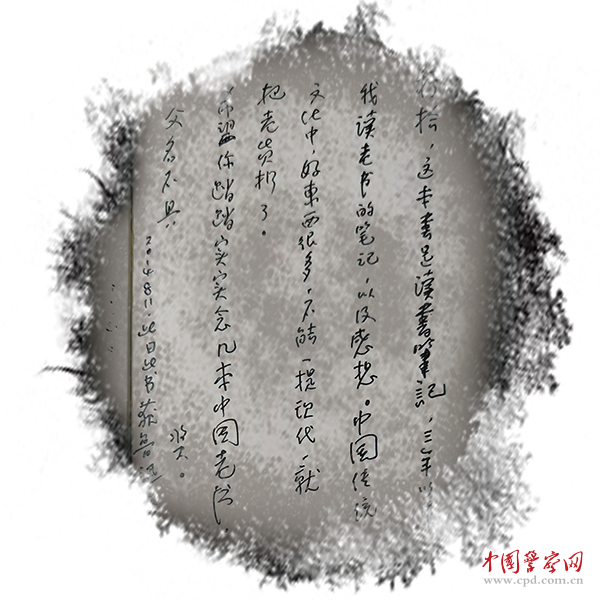 拾，这本書是读書筆記，三年以
我读老书的笔记，以及感想。中国传统
文化中，好東西很多，不能一提现代，就
把老货扔了。
希盼你踏踏实实念几本中国老书。
父名不具
2014.8.11.此日此书获鲁迅
中国警察网
www.cpd.com.cn